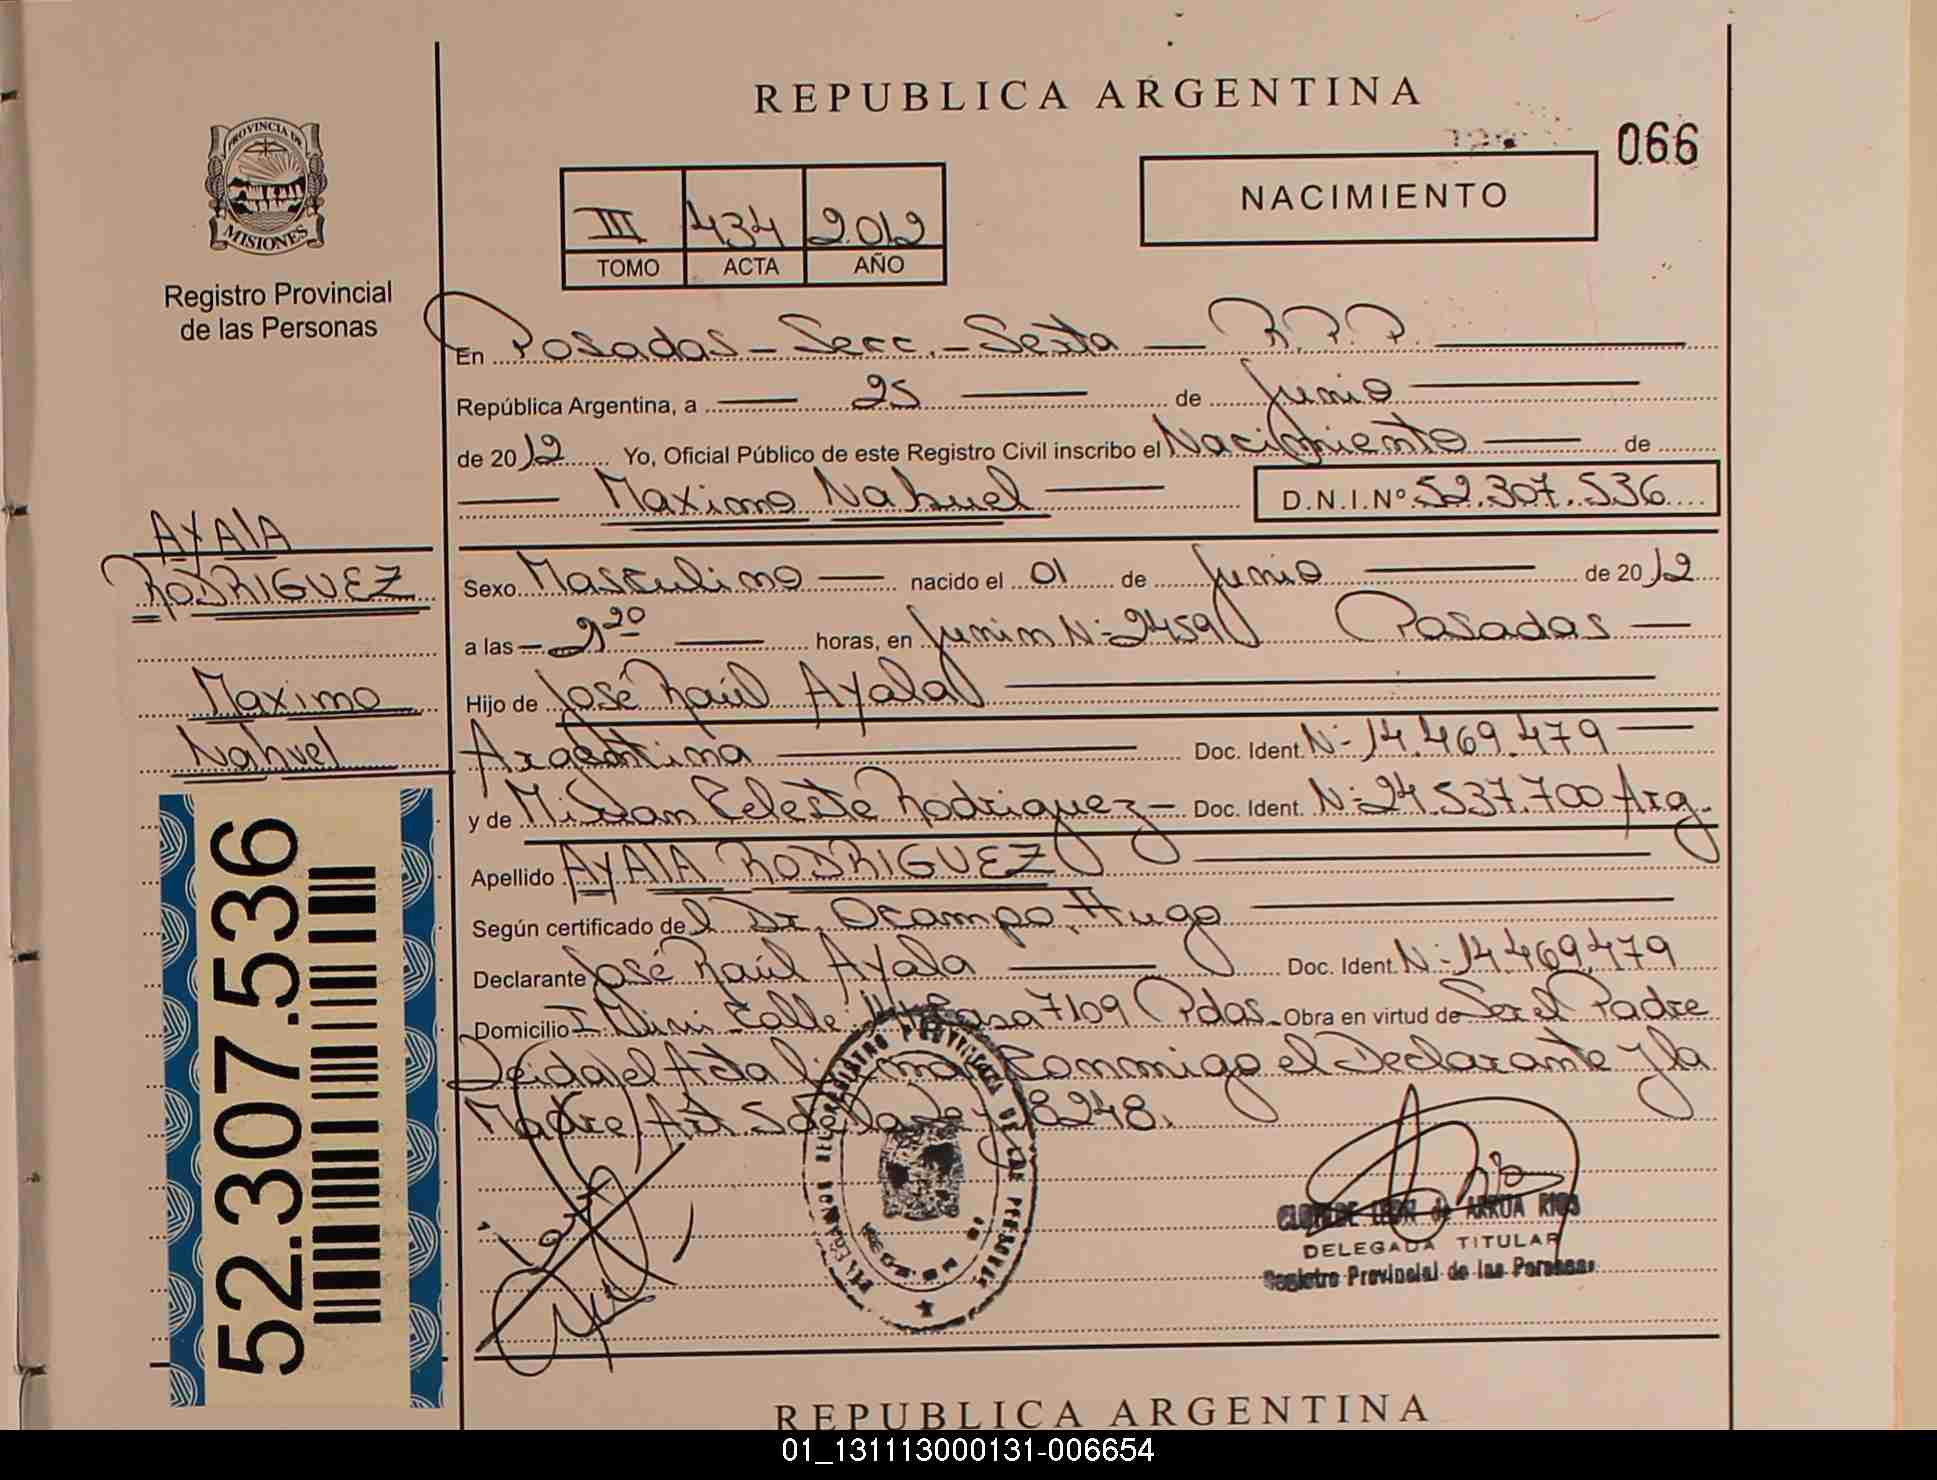 REPUBLICA ARGENTINA
066
PROVINCIA DE
MISIONES
Registro Provincial
de las Personas
III 434 2.012
TOMO ACTA AÑO
NACIMIENTO
En Posadas - Secc. - Sexta — R.P.P.
República Argentina, a — 25 — de Junio
de 2012 Yo, Oficial Público de este Registro Civil inscribo el Nacimiento — de
Maximo Nahuel — D.N.I.Nº 52.307.536
AYALA
RODRIGUEZ
Maximo
Nahuel
Sexo Masculino — nacido el 01 de Junio — de 2012
a las — 2,20 — horas, en Junin N:2459 Posadas —
Hijo de José Raúl Ayala
Argentina — Doc. Ident. N- 14.469.479 —
y de Miriam Celeste Rodriguez - Doc. Ident. N:24.537.700 Arg.
Apellido AYALA RODRIGUEZ
Según certificado del Dr. Ocampo, Hugo
Declarante José Raúl Ayala — Doc. Ident. N: 14.469.479
Domicilio Calle Casa 7109 Pdas - Obra en virtud de Ser el Padre
Leida el Acta Conmigo el Declarante y la
Madre, Art 5 de la Ley 18248.
52.307.536
REGISTRO PROVINCIAL DE LAS PERSONAS
DELEGADA TITULAR
Registro Provincial de las Personas
REPUBLICA ARGENTINA
01_131113000131-006654